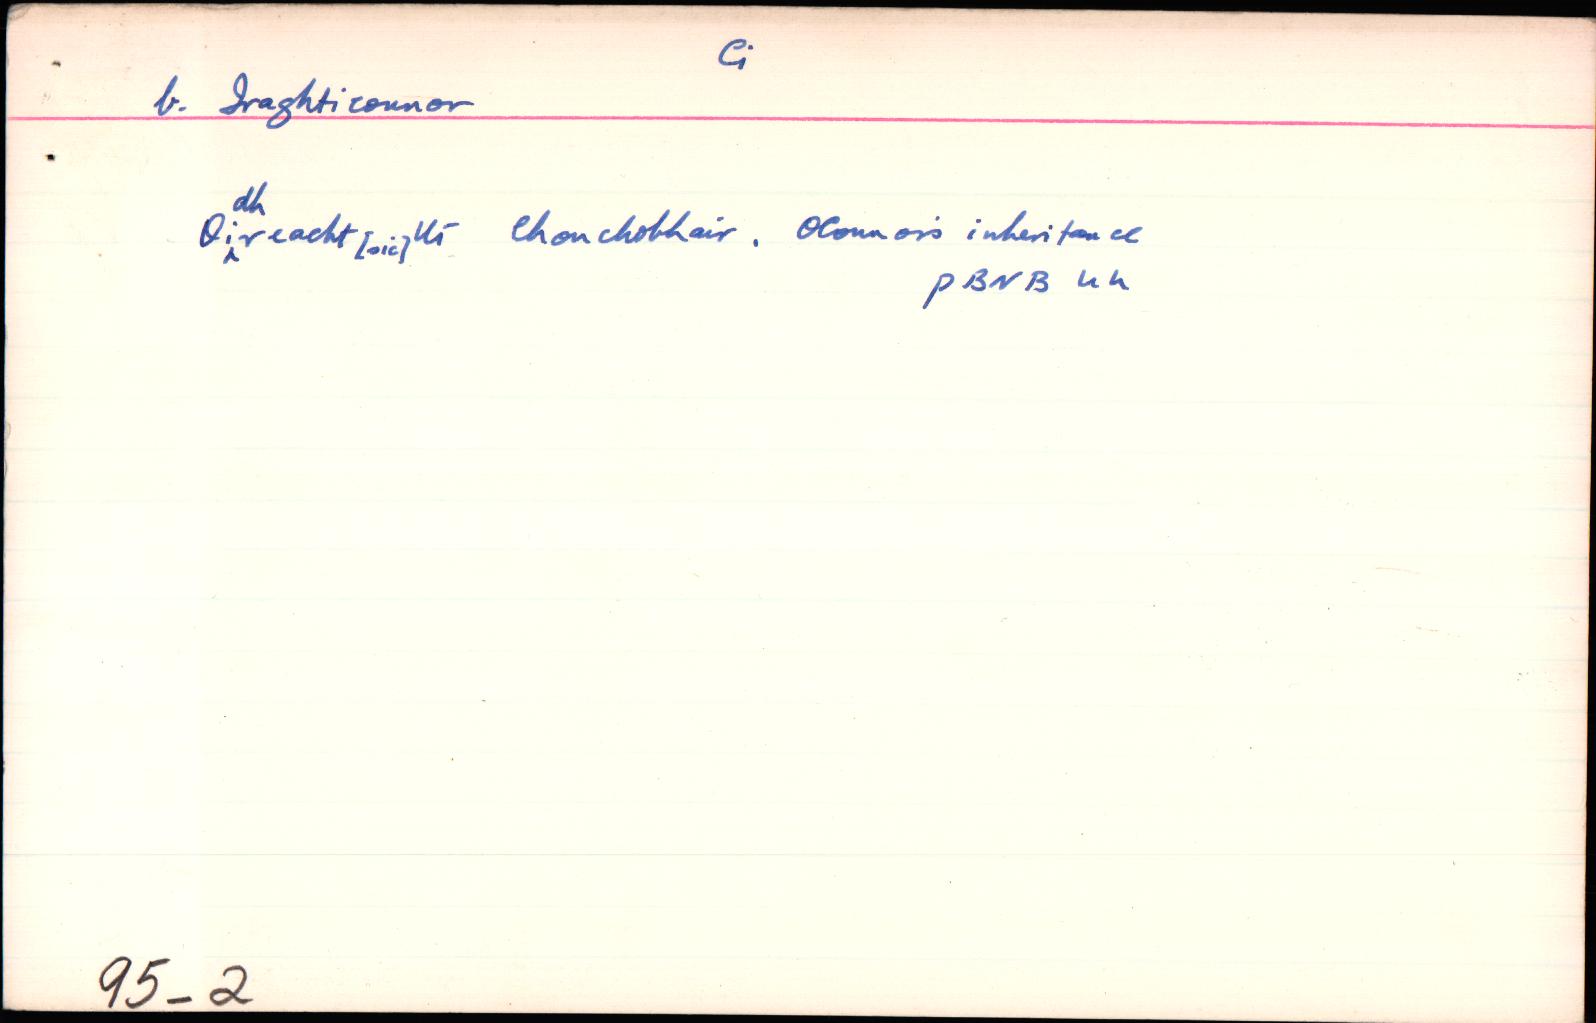 Ci
b. Iraghticonnor
dh
Oireacht [sic] Uí Chonchobhair. OConnor's inheritance
pBNB
95-2